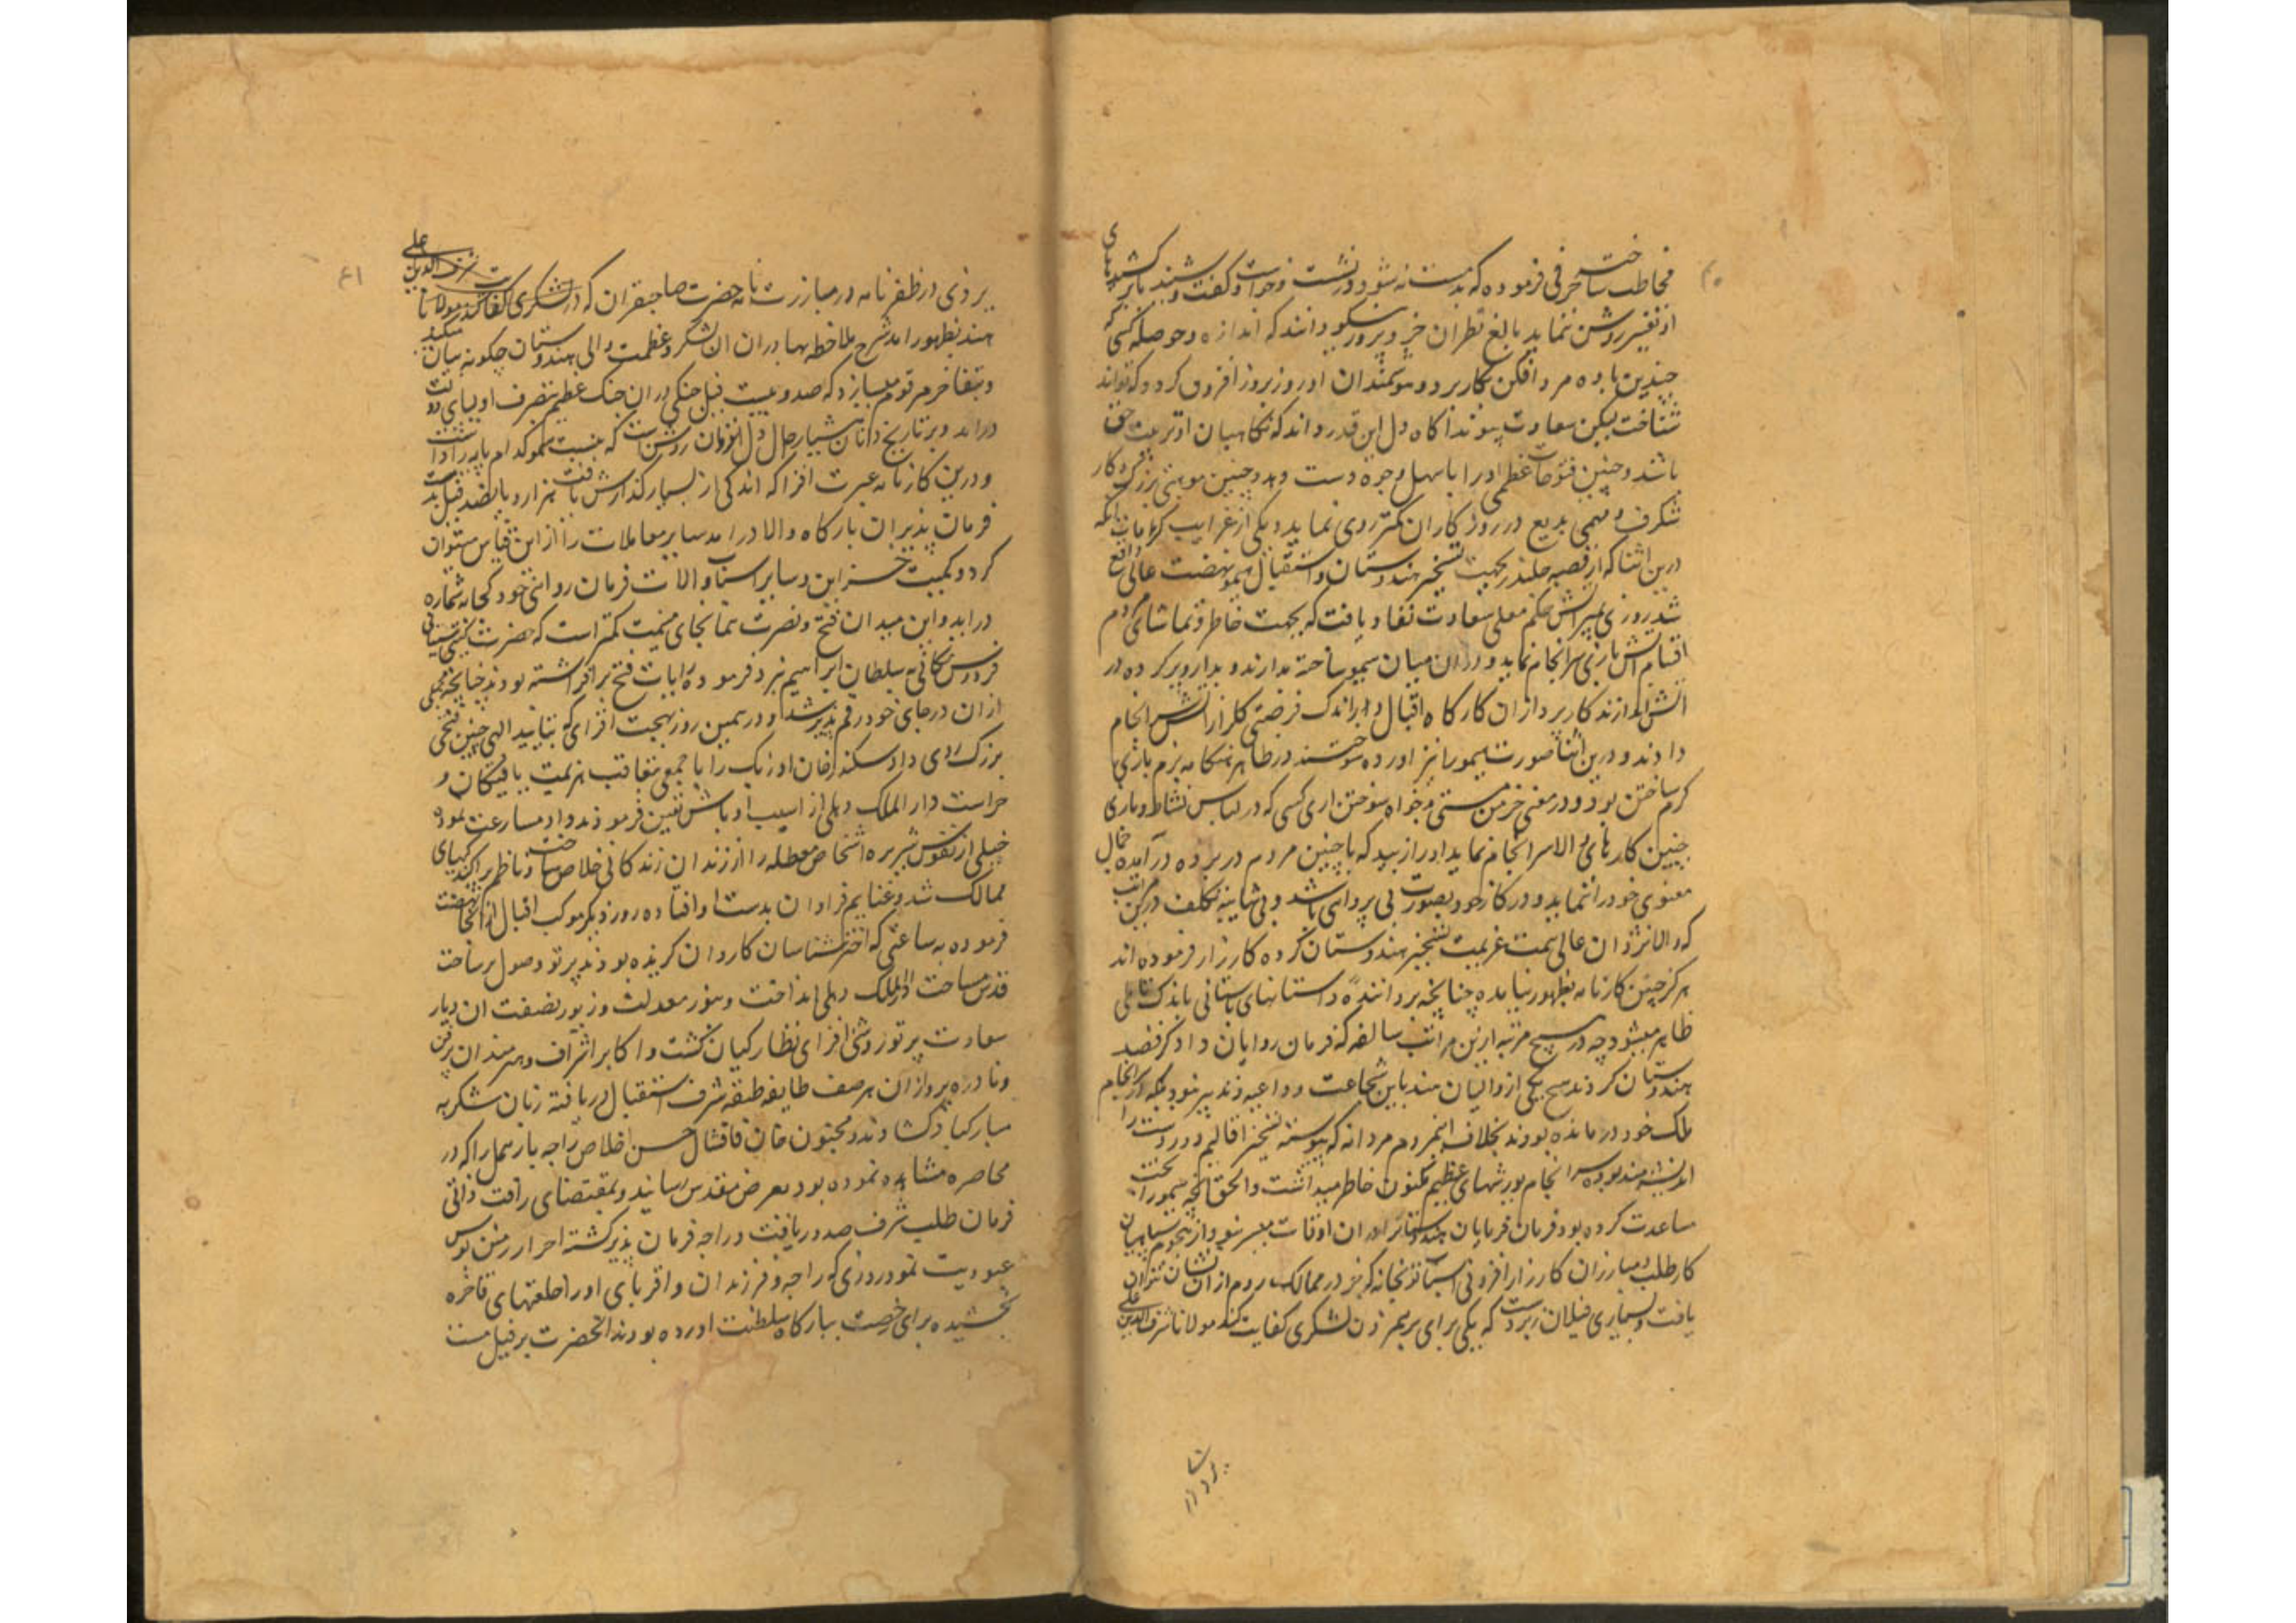 مخاطب ساخته حرفی فرموده که
از تفسیر روشن نماید بالغ نظران خرد پرور نیکو دانند که اندازه و حوصله کسی که
چندین باده مرد افکن بکار برد و هوشمندان او روز بروز افزون گردد که تواند
شناخت لیکن سعادت پیوند اگاه دل این قدر داند که نگاهبان او تربیت حق
باشد و چنین فتوحات عظمی او را باسهل وجوه دست دهد و چنین موهبتی بزرگ و کار
شگرف و مهمی بدیع در روزگاران کمتر روی نماید و یکی از غرایب کرامات انکه
درین اثنا که از قصبه جلندر بجهت تسخیر هندوستان و استیصال هیمو نهضت عالی واقع
شد روزی بمیر اتش حکم معلی سعادت نفاد یافت که بجهت خاطر و تماشای مردم
اقسام اتش بازی سرانجام نماید و دران میان هیمو ساخته بدارند و
اتش اندازند کارپردازان کارگاه اقبال در اندک فرصتی گلزار اتش سرانجام
دادند و درین اثنا صورت هیمو را نیز اورده سوختند در ظاهر هنگامه بزم بازی
گرم ساختن بود و در معنی خرمن هستی بدخواه سوختن اری کسی که در لباس نشاط و بازی
چنین کارهای والا سرانجام نماید او را زیبد که با چنین مردم در پرده درآمده جمال
معنوی خود را ننماید و در کار خود بصورت بی پروای باشد و بی شایبه تکلف درین مراتب
که والانژدان عالی همت عزیمت تسخیر هندوستان کرده کارزار فرموده اند
هرگز چنین کارنامه بظهور نیامده چنانچه بر دانندهٔ داستانهای باستانی باندک تاملی
ظاهر میشود چه در هیچ مرتبه ازین مراتب سالفه که فرمان روایان دادگر قصد
هندوستان کردند هیچ یکی از والیان هند باین شجاعت و داعیه و تدبیر نبود بلکه از سرانجام
ملک خود در مانده بودند بخلاف این مردم مردانه که پیوسته تسخیر اقالیم دوردست را
اندیشه مند بوده سرانجام یورشهای عظیم مکنون خاطر میداشت والحق انچه هیمو را بخت
مساعدت کرده بود فرمان فرمایان هندوستان را دران اوقات میسر نبود از هجوم سپاهیان
کارطلب و مبارزان کارزار و افزونی اسباب توپخانه که جز در ممالک روم از ان نشان نتوان
یافت و بسیاری فیلان زبردست که یکی برای برهم زدن لشکری کفایت کند مولانا شرف الدین علی
یزدی در ظفرنامه در مبارزت نامه حضرت صاحبقران که در
هند بظهور امد شرح ملاحظه بهادران ان لشکر و عظمت والی هندوستان چگونه بیان میکند
و بتفاخر مرقوم میسازد که صد و بیست فیل جنگی دران جنگ عظیم بتصرف اولیای دولت
درامد و بر تاریخ دانان هشیار حال و دل افروزان روشن است که
و درین کارنامه عبرت افزا که اندکی از بسیار گذارش یافت هزار و پانصد فیل بدست
فرمان پذیران بارگاه والا درامد سایر معاملات را ازین قیاس میتوان
کرد و کمیت خزاین و سایر اسباب و الات فرمان روائی خود کجا بشماره
دراید و این میدان فتح و نصرت نما بجای میمنت گستر است که حضرت گیتی ستانی
فردوس مکانی به سلطان ابراهیم نبرد فرموده رایات فتح برافراشته بودند چنانچه مجملی
ازان در جای خود رقم پذیر شد و در همین روز بهجت افزای که بتایید الهی چنین فتحی
بزرگ روی داد سکندر خان اوزبک را با جمعی بتعاقب هزیمت یافتگان و
حراست دار الملک دهلی از اسیب اوباش تعین فرمودند و او مسارعت نموده
خیلی از نفوس شریره اشخاص معطله را از زندان زندگانی خلاص ساخت و ناظم پراکندگیهای
ممالک شد و غنایم فراوان بدست او افتاده روز دیگر موکب اقبال از انجا نهضت
فرموده به ساعتی که اخترشناسان کاردان گزیده بودند پرتو وصول بر ساحت
قدس مساحت دارالملک دهلی انداخت و بنور معدلت و زیور نصفت ان دیار
سعادت پرتو روشنی افزای نظارگیان گشت و اکابر اشراف و هنرمندان پرفن
و نادره پردازان هر صف طایفه طبقه شرف استقبال دریافته زبان شکر به
مبارکباد گشادند و مجنون خان قاقشال حسن اخلاص راجه بارهمل را که در
محاصره مشاهده نموده بود بعرض مقدس رسانید و بمقتضای رافت ذاتی
فرمان طلب شرف صدور یافت و راجه فرمان پذیر گشته احراز زمین بوس
عبودیت نمود روزی که راجه و فرزندان و اقربای او را خلعتهای فاخره
بخشیده برای رخصت ببارگاه سلطنت اورده بودند انحضرت بر فیل مست